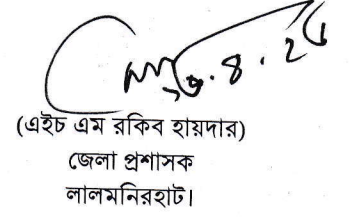 (এইচ এম রকিব হায়দার)
জেলা প্রশাসক
লালমনিরহাট।